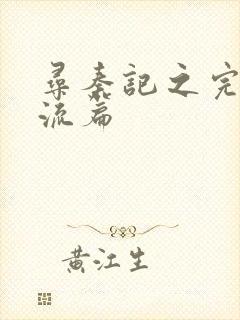 尋秦記之完
流篇
黄江生